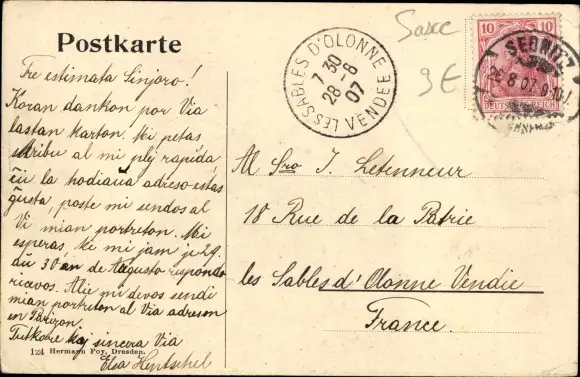 Postkarte
Tre estimata Sinjoro!
Koran dankon por Via
lastan karton. Mi petas
skribu al mi plej rapida,
ĉu la hodiaŭa adreso estas
ĝusta, poste mi sendos al
Vi mian portreton. Mi
esperas, ke mi jam je 29.
aŭ 30an de Aŭgusto respondo
ricevos. Alie mi devos sendi
mian portreton al Via adreson
en Parizon.
Tutkore kaj sincera Via
Elsa Hentschel
124 Hermann Poy, Dresden.
LES SABLES D'OLONNE
7 30
28-8
07
VENDÉE
Sasce
9 €
10 10
DEUTSCHES REICH
SEBNITZ
26.8 07. 9-10
Al Sro J. Letenneur
18 Rue de la Patrie
les Sables d'Olonne Vendie
France.